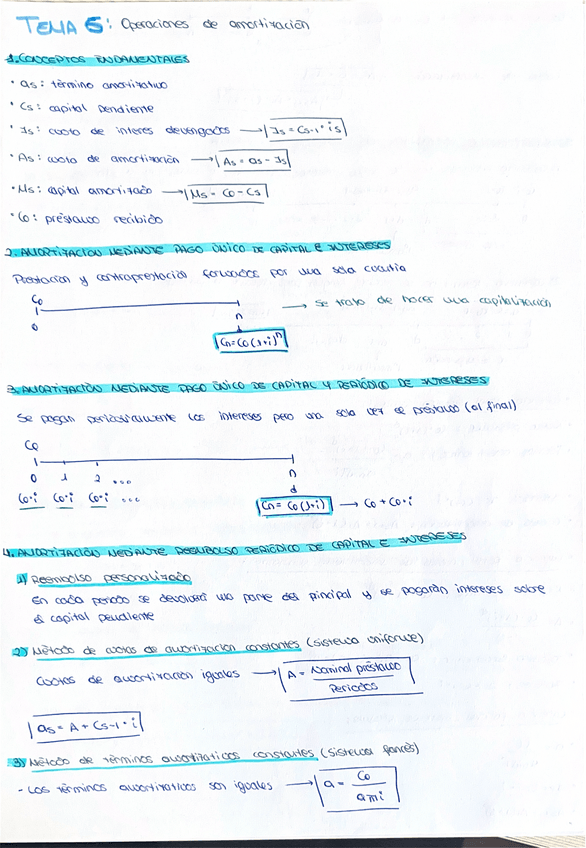 TEMA 6: Operaciones de amortización
1. CONCEPTOS FUNDAMENTALES
• as: término amortizativo
• Cs: capital pendiente
• Is: cuota de interes devengados → Is = Cs-1 · is
• As: cuota de amortización → As = as - Is
• Ms: capital amortizado → Ms = Co - Cs
• Co: préstamo recibido
2. AMORTIZACION MEDIANTE PAGO ÚNICO DE CAPITAL E INTERESES
Prestación y contraprestación formados por una sola cuantía
Co
→ se trata de hacer una capitalización
0 n
Cn = Co (1+i)^n
3. AMORTIZACIÓN MEDIANTE PAGO ÚNICO DE CAPITAL Y PERIÓDICO DE INTERESES
Se pagan periódicamente los intereses pero una sola vez el préstamo (al final)
Co
0 1 2 ... n
Co·i Co·i Co·i ... Cn = Co (1+i) → Co + Co·i
4. AMORTIZACIÓN MEDIANTE REEMBOLSO PERIÓDICO DE CAPITAL E INTERESES
1) Reembolso personalizado
En cada periodo se devolverá una parte del principal y se pagarán intereses sobre
el capital pendiente
2) Método de cuotas de amortización constantes (sistema uniforme)
Cuotas de amortización iguales → A = Nominal préstamo / Periodos
as = A + Cs-1 · i
3) Método de términos amortizativos constantes (sistema francés)
- Los términos amortizativos son iguales → a = Co / a n i